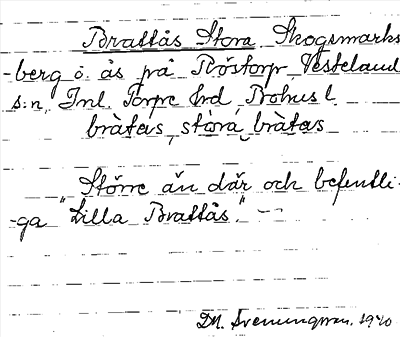 Brattås Stora Skogsmarks
-berg ö. ås på Röstorp Västerlanda
s:n, Inl. Torpe hrd Bohusl.
bråtas, stòrá bråtas
"Större än där och befentli-
-ga "Lilla Brattås." —
D.H. 1940